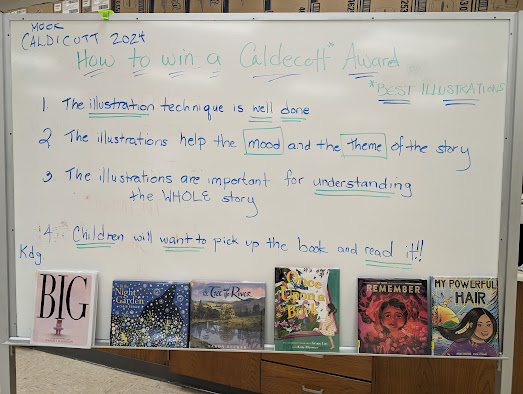 MOCK
CALDICOTT 2024
How to win a Caldecott* Award
*BEST ILLUSTRATIONS
1. The illustration technique is well done
2. The illustrations help the mood and the theme of the story
3. The illustrations are important for understanding
the WHOLE story
4. Children will want to pick up the book and read it!!
Kdg
BIG
Night
Garden
the Tree the River
Once
Upon a
Book
REMEMBER
MY POWERFUL
HAIR